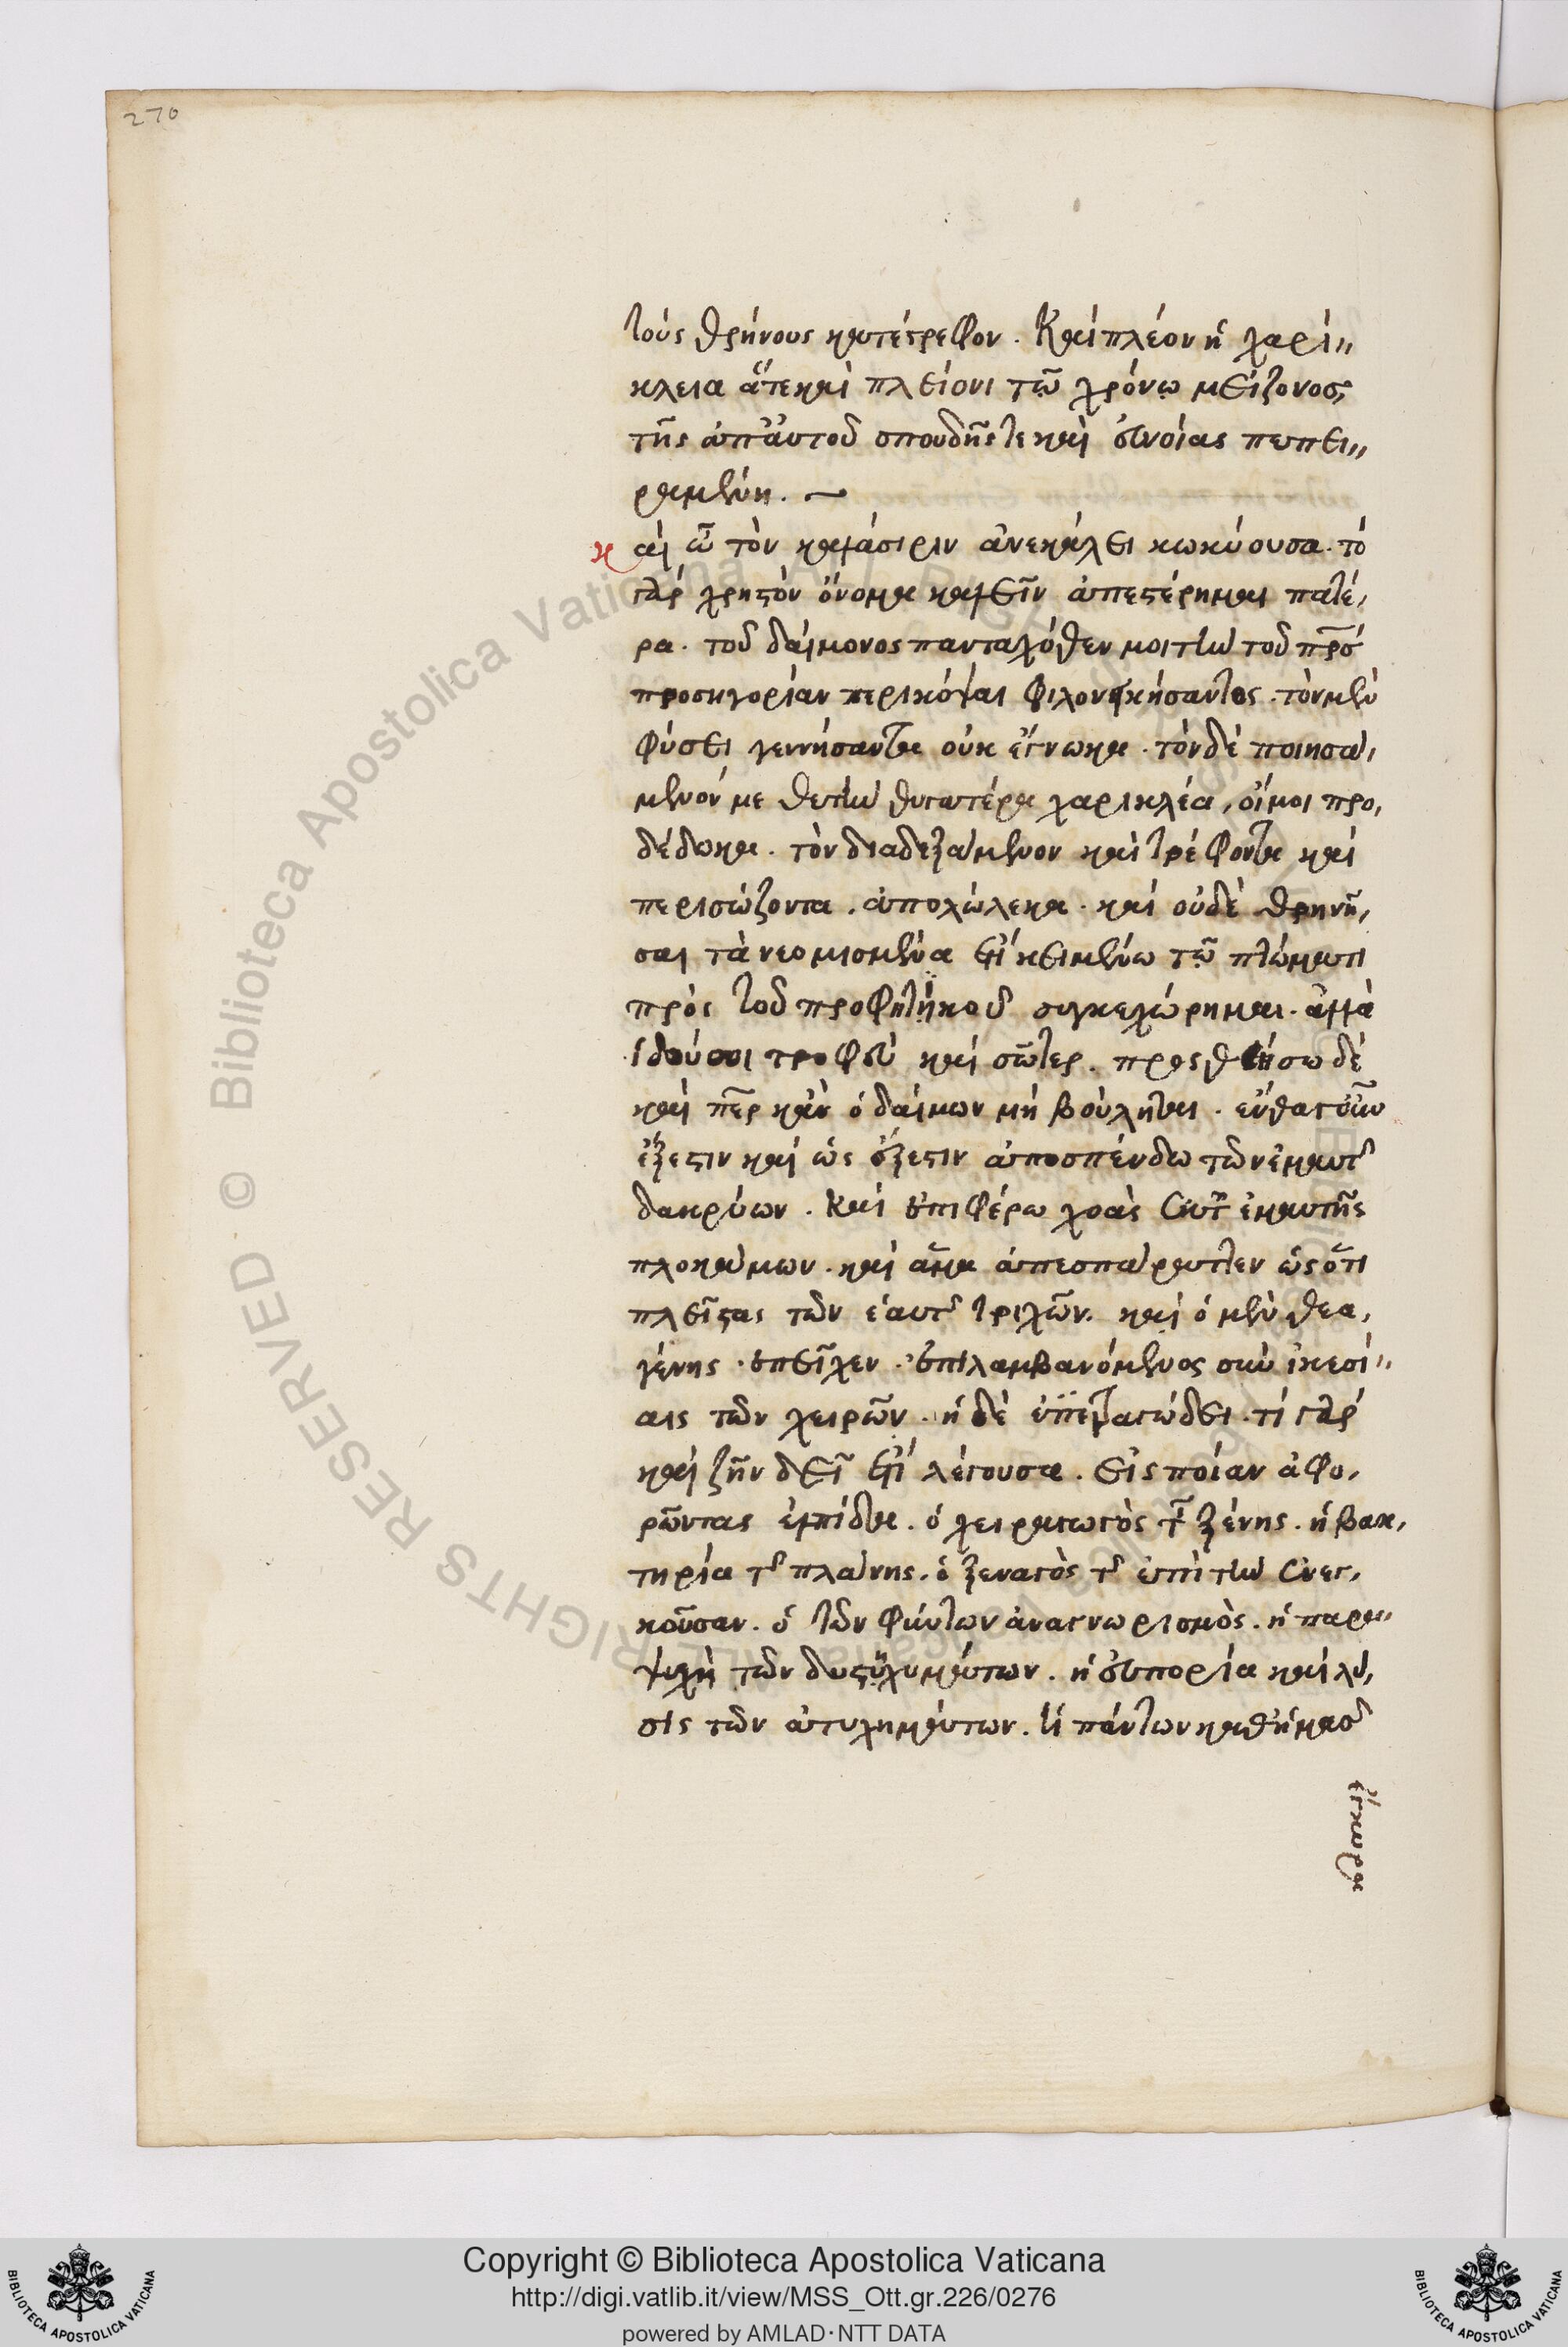 270
τοὺς θρήνους κατέστρεφον. Καὶ πλέον ἡ χαρί〃
κλεια ἅτε καὶ πλείονι τῶ χρόνω μείζονος
τῆς ἀπ' αὐτοῦ σπουδῆς τε καὶ εὐνοίας πεπει〃
ραμένη. —
και ὦ τὸν καλάσιριν ἀνεκάλει κωκύουσα. τὸ
γὰρ χρηστὸν ὄνομα καλεῖν ἀπεστέρημαι πατέ,
ρα. τοῦ δαίμονος πανταχόθεν μοι τὴν τοῦ πρς
προσηγορίαν περικόψαι φιλονεικήσαντος. τὸν μὲν
φύσει γεννήσαντα οὐκ ἔγνωκα. τὸν δὲ ποιησά,
μενόν με θετὴν θυγατέρα χαρικλέα, οἴμοι προ,
δέδωκα. τὸν διαδεξάμενον καὶ τρέφοντα καὶ
περισώζοντα. ἀπολώλεκα. καὶ οὐδὲ θρηνῆ,
σαι τὰ νεομισμένα ἔτι κειμένω τῶ πτώματι
πρὸς τοῦ προφητικοῦ συγκεχώρημαι. ἀλλὰ
ἰδού σοι τροφεῦ καὶ σῶτερ. προσθήσω δὲ
καὶ περ κἂν ὁ δαίμων μὴ βούληται. ἔνθα γοῦν
ἔξεστιν καὶ ὡς ἔξεστιν ἀποσπένδω τῶν ἐμαυτ
δακρύων. Καὶ ἐπιφέρω χοὰς ἐκ τ ἐμαυτῆς
πλοκάμων. καὶ ἅμα ἀπεσπάραττεν ὡς ὅτι
πλείστας τῶν ἑαυτ τριχῶν. καὶ ὁ μὲν θεα,
γένης. ἐπεῖχεν. ἐπιλαμβανόμενος σὺν ἱκεσί〃
αις τῶν χειρῶν. ἡ δὲ ἐπετραγώδει. τί γὰρ
καὶ ζῆν δεῖ ἔτι λέγουσα. εἰς ποίαν ἀφο,
ρῶντας ἐλπίδα. ὁ χειραγωγὸς τ ξένης. ἡ βακ,
τηρία τ πλάνης. ὁ ξεναγὸς τ ἐπὶ τὴν ἐνεγ,
κοῦσαν. ὁ τῶν φύντων ἀναγνωρισμὸς. ἡ παρα〃
ψυχὴ τῶν δυστυχημάτων. ἡ εὐπορία καὶ λύ,
σις τῶν ἀτυχημάτων. ἡ πάντων καθ' ἡμᾶσ
ἄγκυρα
Copyright © Biblioteca Apostolica Vaticana
http://digi.vatlib.it/view/MSS_Ott.gr.226/0276
powered by AMLAD·NTT DATA